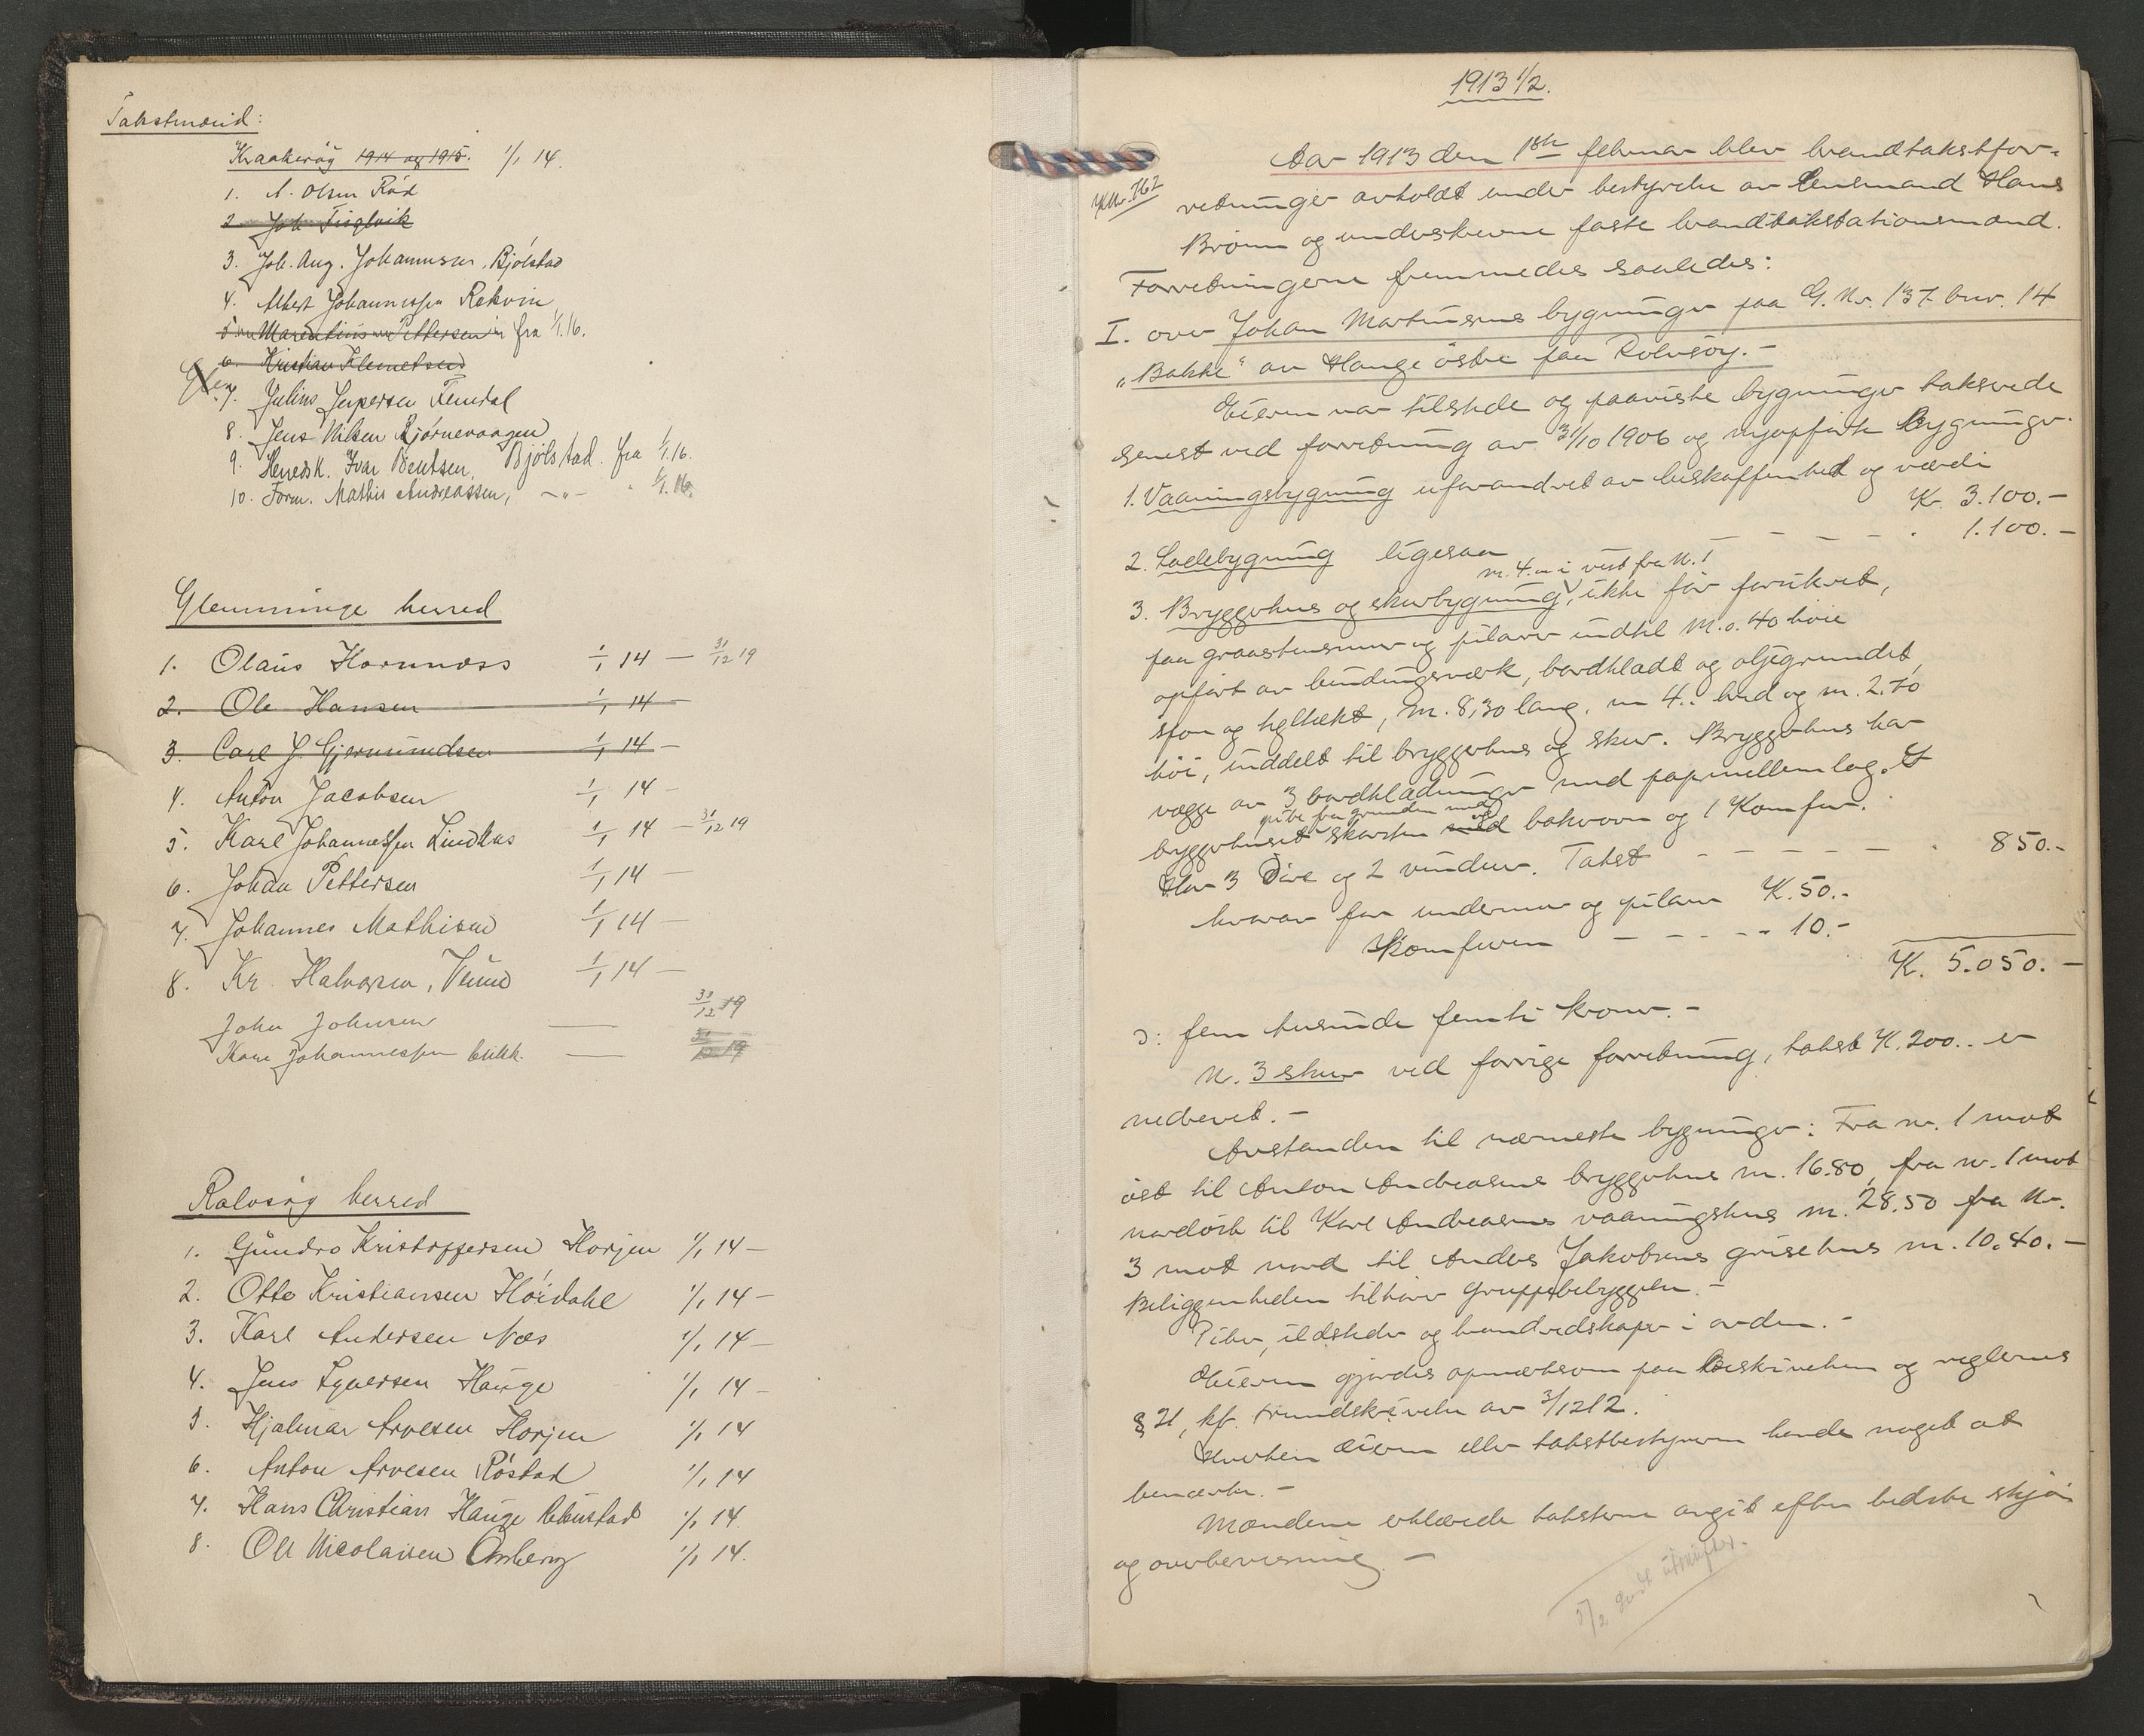 Takstmænd:
Kraakerøy 1914 og 1915. 1/1 14.
1. A. Olsen Rød
2. Joh.
3. Joh. Aug. Johannessen, Bjølstad
4. Albert Johannessen Rekvin
5 Marentius Pettersen fra 1/1.16.
6. Kristian Klemetsen
7. Julius Jespersen Femdal
8. Jens Nilsen Bjørnevaagen
9. Hovedsk. Ivar Bentsen, Bjølstad. fra 1/1.16.
10. Form. Mathis Andreassen, -"- " 1/1.16.
Glemminge herred
1. Olaus Hornnæss 1/1 14 — 31/12 19
2. Ole Hansen 1/1 14 —
3. Carl J. Gjermundsen 1/1 14 —
4. Anton Jacobsen 1/1 14 —
5. Karl Johannessen Lindhus 1/1 14 — 31/12 19
6. Johan Pettersen 1/1 14 —
7. Johannes Mathisen 1/1 14 —
8. Kr. Halvorsen, Veum 1/1 14 —
John Johnsen — 31/12 19
Kare Johannessen — 31/12 19
Rolvsøy herred
1. Gundro Kristoffersen Horjen 1/1 14 —
2. Otto Kristiansen Høidahl 1/1 14 —
3. Karl Andersen Næs 1/1 14 —
4. Jens Syversen Hauge 1/1 14 —
5. Hjalmar Arvesen Horjen 1/1 14
6. Anton Arvesen Røstad 1/1 14
7. Hans Christian Hauge 1/1 14.
8. Ole Nicolaisen Omberg 1/1 14.
1913 1/2.
Aar 1913 den 1ste februar blev brandtakstfor-
retninger avholdt under bestyrelse av lensmand Hans
Brønn og underskrevne faste brandtakstationsmænd.
Forretningerne fremmedes saaledes:
I. over Johan Martinsens bygninger paa G. Nr. 137 brnr. 14
"Bakke" av Hauge østre paa Rolvsøy.-
Eieren var tilstede og paaviste bygninger takserede
senest ved forretning av 31/10 1906 og nyopførte bygninger.
1. Vaaningsbygning uforandret av beskaffenhed og værdi
K. 3.100.-
2. Ladebygning ligesaa - - - - - 1.100.-
m. 4. i vest fra N. 1
3. Bryggerhus og skurbygning, ikke før forsikret,
paa graastensmur og pilarer indtil m. 0.40 høie
opført av bindingsverk, bordklædt og oljegrundet,
spon og tegltækt, m. 8,30 lang, m 4.. bred og m. 2.70
høi, inddelt til bryggerhus og skur. Bryggerhus har
vægge av 3 bordklædninger med papmellemlag. I
pibe fra grunden med
bryggerhuset skorsten med bakerovn og 1 Komfur.
Har 3 Døre og 2 vinduer. Takst - - - - - 850.-
hvorav for undermur og pilarer K. 50.-
Komfuren - - - - 10.-
K. 5.050.-
ɔ: fem tusinde femti kroner.-
N. 3 skur ved forrige forretning, takst K. 200.. er
nedrevet.-
Avstanden til nærmeste bygninger: Fra nr. 1 mot
øst til Anton Andreasens bryggerhus m. 16.80, fra nr. 1 mot
nordøst til Karl Andreasens vaaningshus m. 28.50 fra Nr.
3 mot nord til Anders Jakobsens grisehus m. 10.40.-
Beliggenheden tilhører gruppebebyggelsen.-
Piber, ildsteder og brandredskaper i orden.-
Eieren gjordes opmerksom paa beskrivelsen og reglernes
§ 21, kfr. rundskrivelse av 3/12 12.
Hverken eieren eller takstbestyreren hadde noget at
bemerke.-
Mændene erklærede taksterne avgit efter bedste skjøn
og overbevisning.-
5/2 sendt utskrifter.